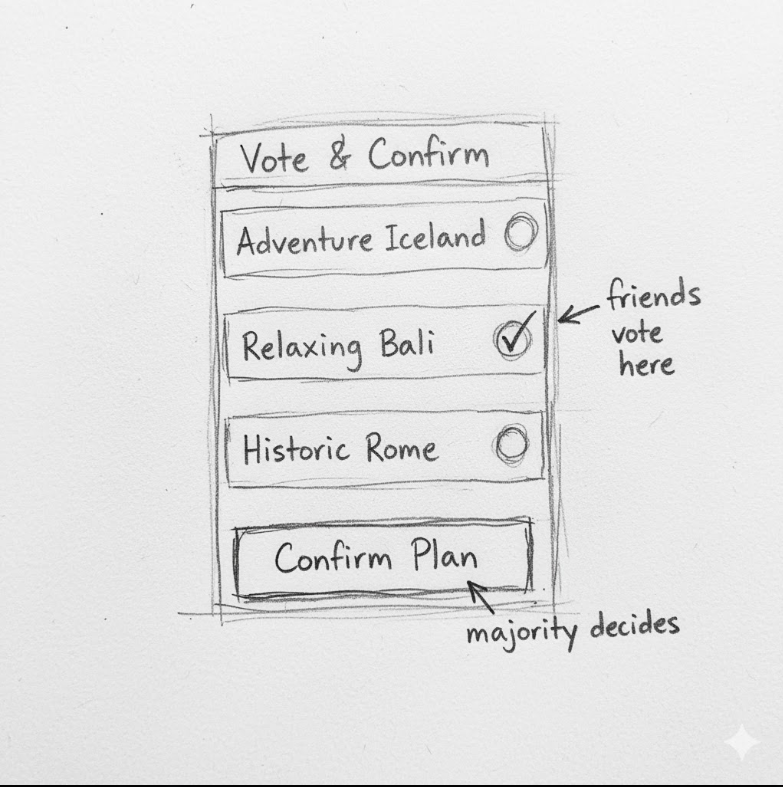 Vote & Confirm
Adventure Iceland
Relaxing Bali
friends
vote
here
Historic Rome
Confirm Plan
majority decides